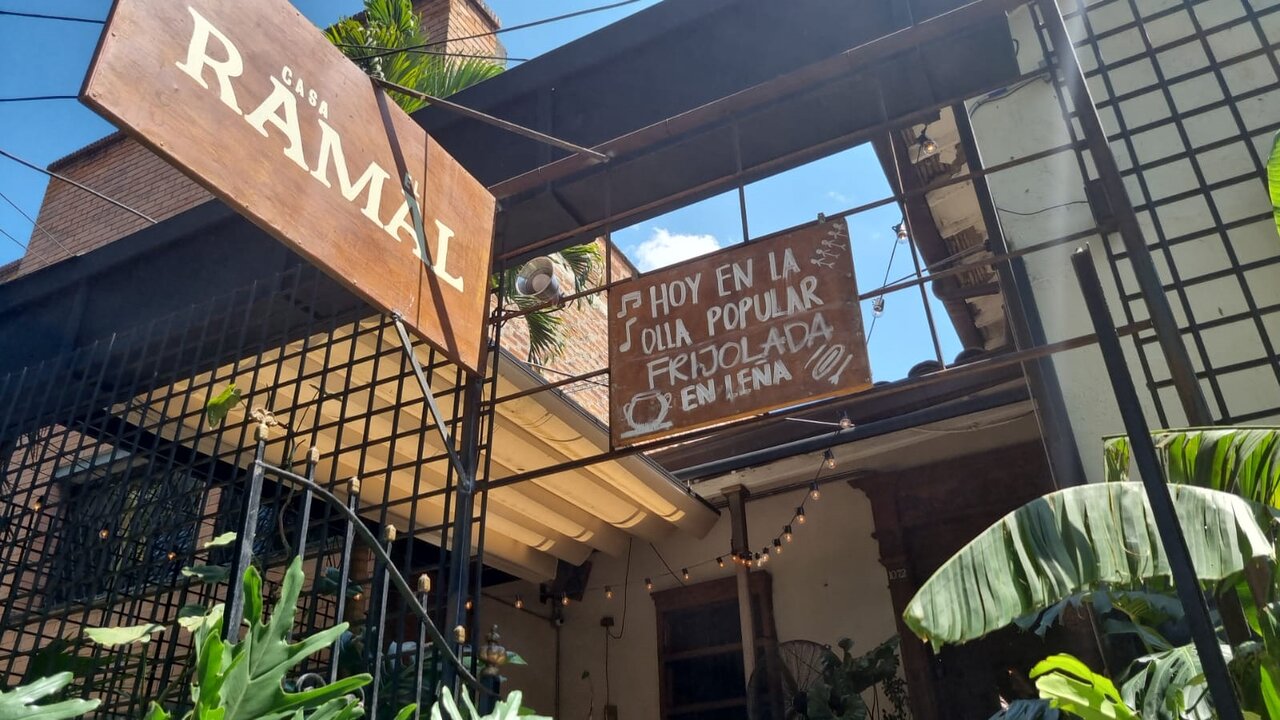 CASA
EL
RAMAL
HOY EN LA
OLLA POPULAR
FRIJOLADA
EN LEÑA
1072